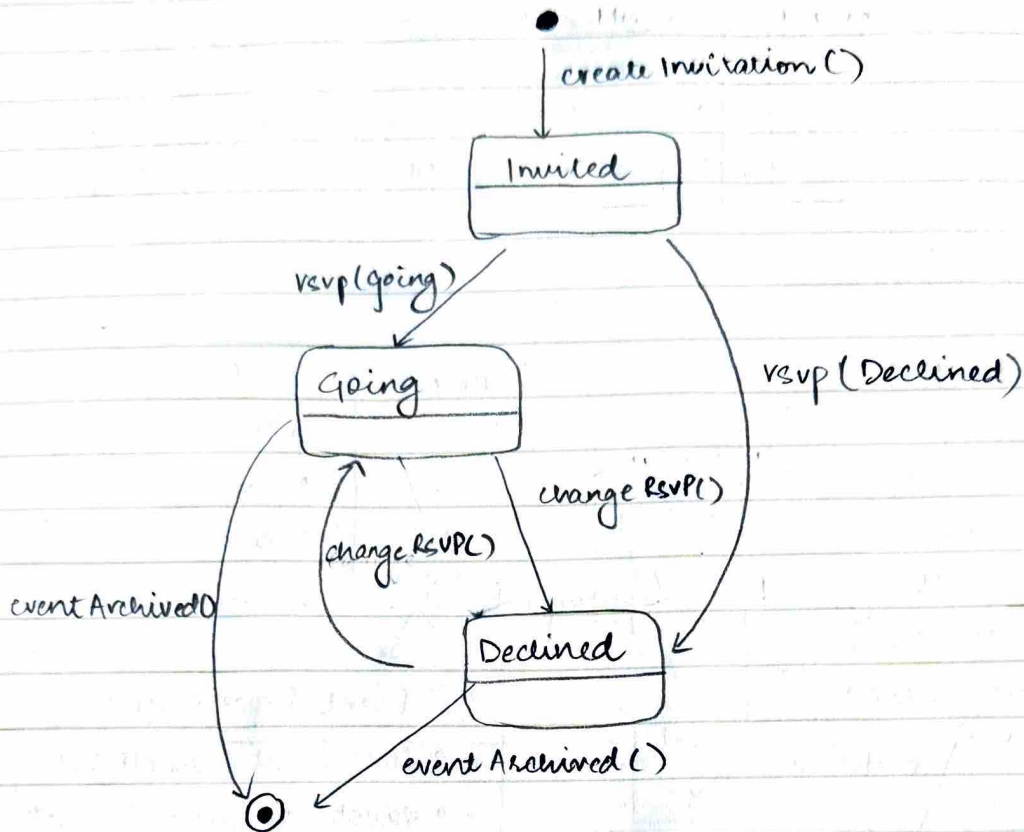 createInvitation()
Invited
rsvp(going)
Going
rsvp(Declined)
changeRSVP()
changeRSVP()
eventArchived()
Declined
eventArchived()